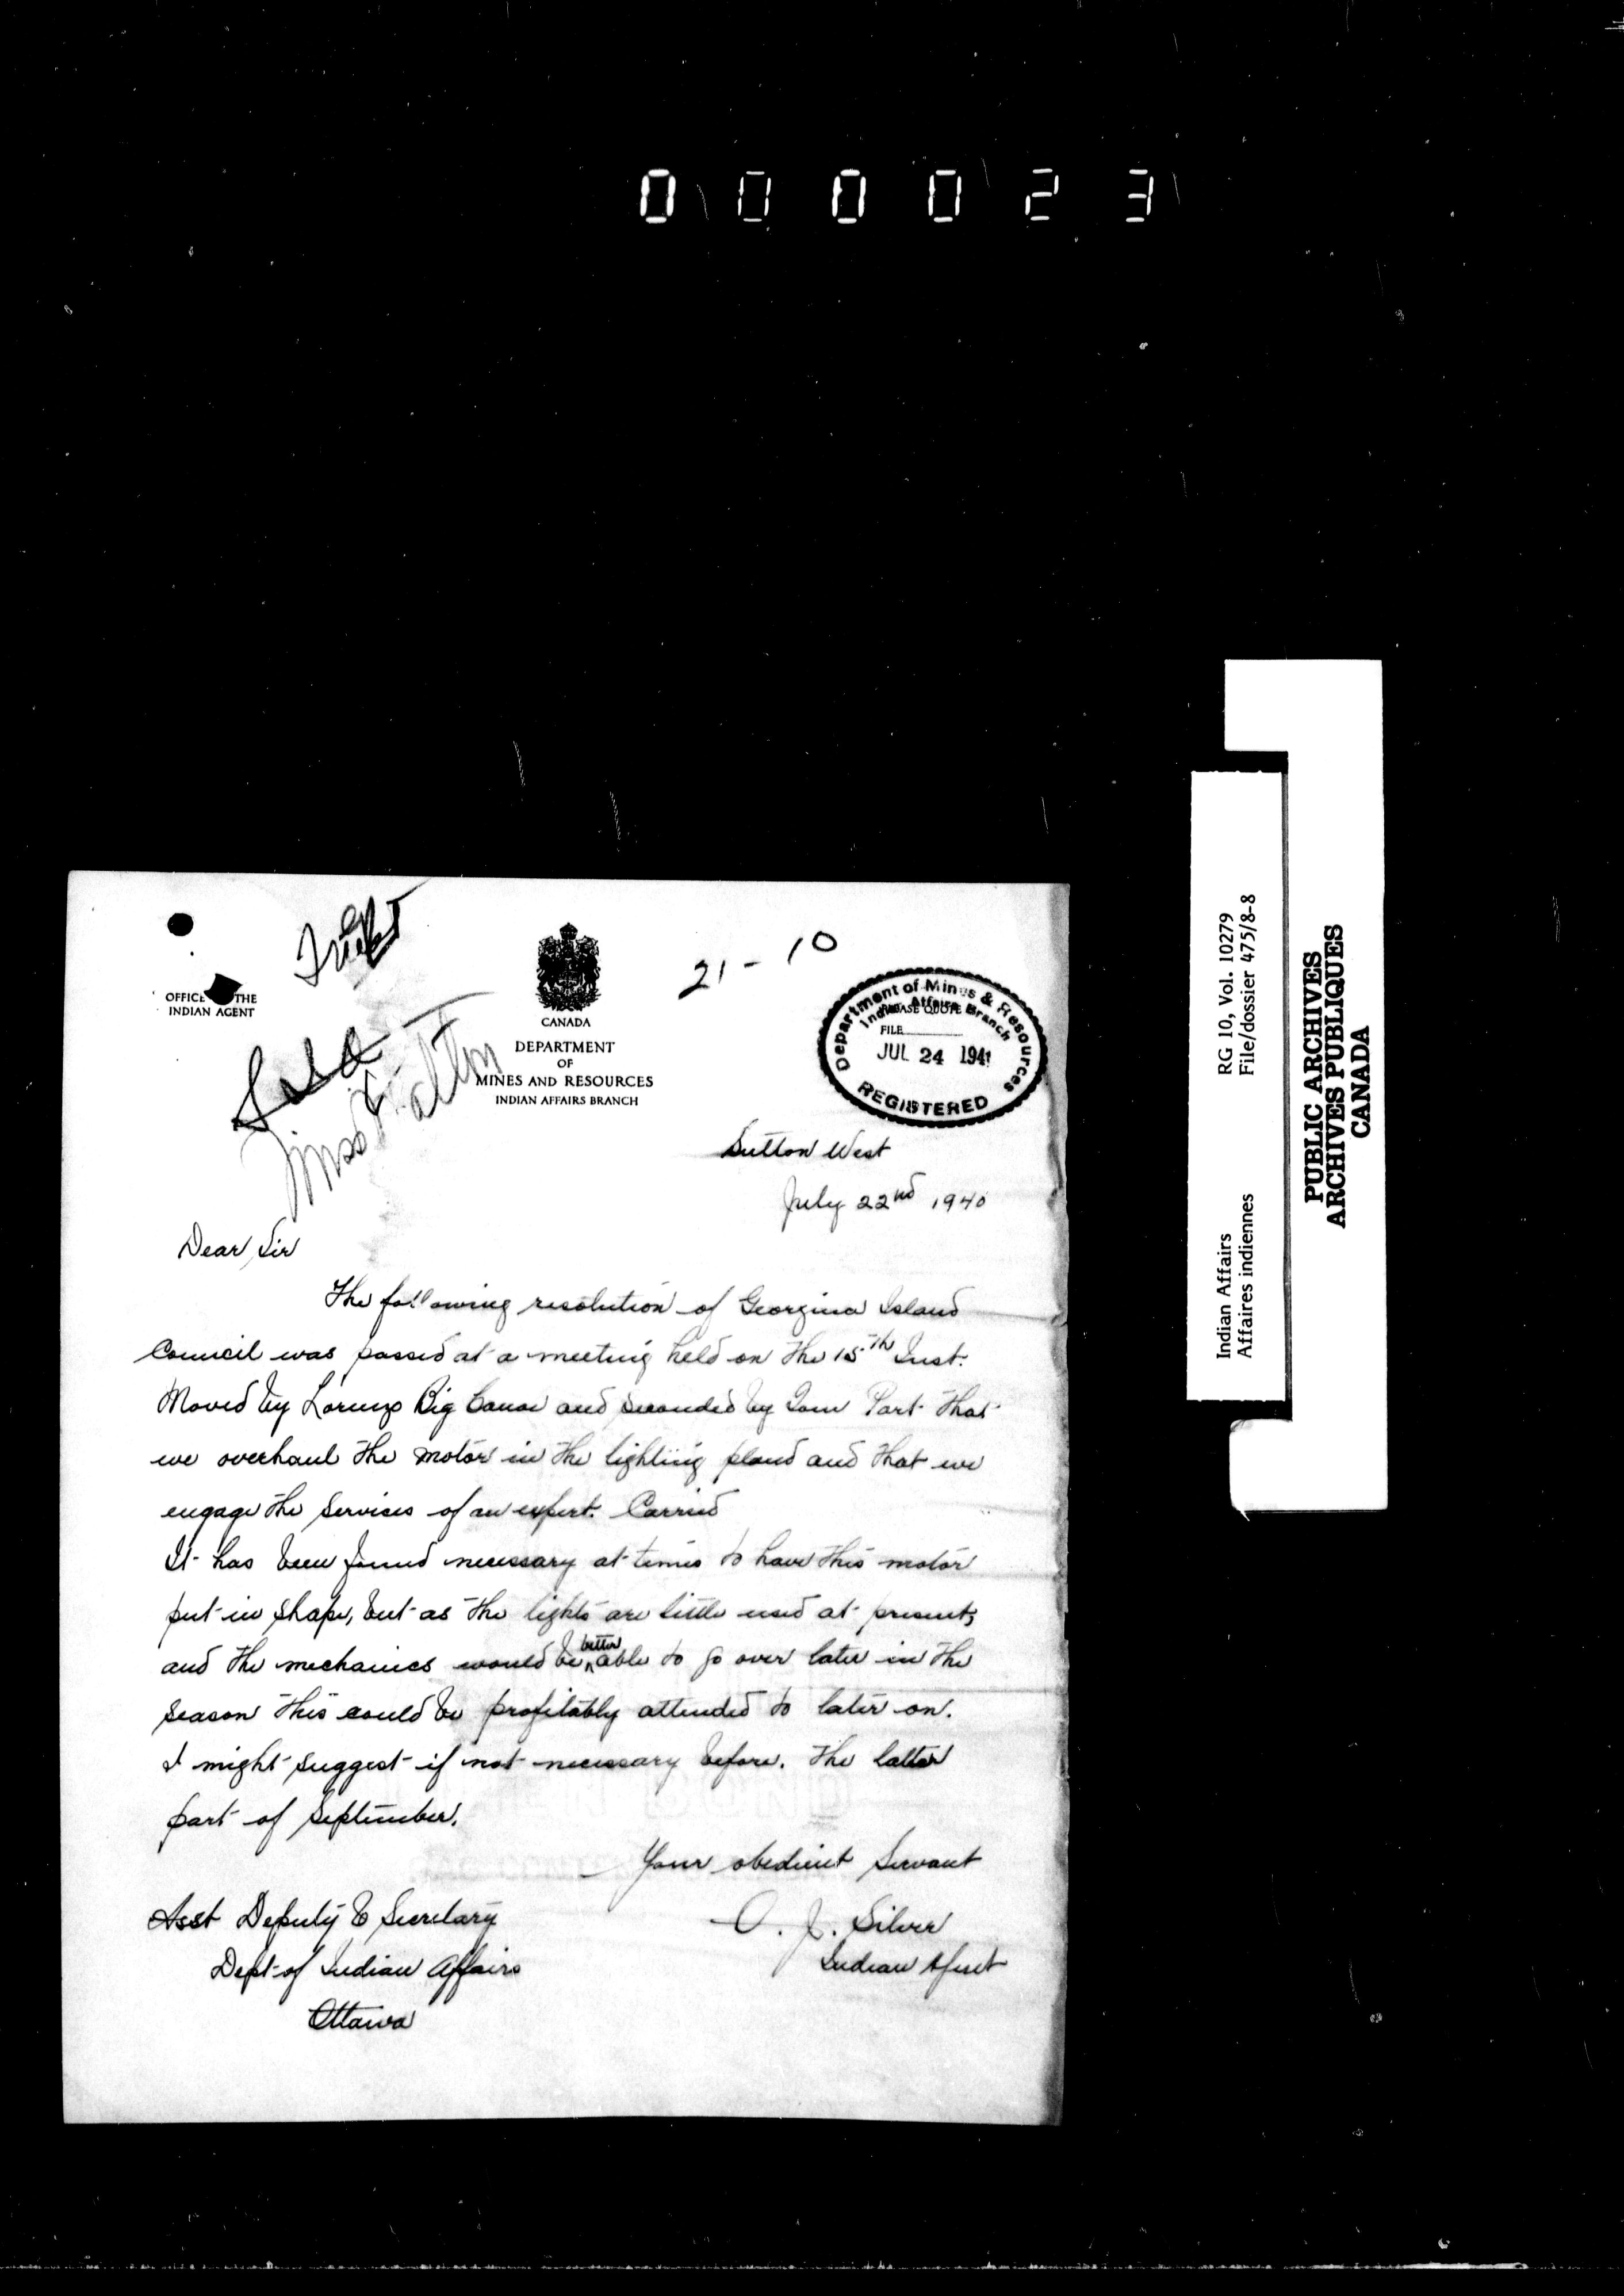 000023
21-10
OFFICE THE
INDIAN AGENT
CANADA
DEPARTMENT
OF
MINES AND RESOURCES
INDIAN AFFAIRS BRANCH
Miss
Department of Mines & Resources
Indian Affairs Branch
PLEASE QUOTE
FILE
JUL 24 1941
REGISTERED
Sutton West
July 22nd 1940
Dear Sir
The following resolution of Georgina Island
Council was passed at a meeting held on the 15th Inst.
Moved by Lorenzo Big Canoe and seconded by Tom Port that
we overhaul the motor in the lighting pland and that we
engage the services of an expert. Carried
It has been found necessary at times to have this motor
put in shape, but as the lights are little used at present,
and the mechanics would be better able to go over later in the
season this could be profitably attended to later on.
I might suggest if not necessary before. The latter
part of September.
Your obedient Servant
O. J. Silver
Indian Agent
Asst Deputy & Secretary
Dept of Indian Affairs
Ottawa
Indian Affairs RG 10, Vol. 10279
Affaires indiennes File/dossier 475/8-8
PUBLIC ARCHIVES
ARCHIVES PUBLIQUES
CANADA